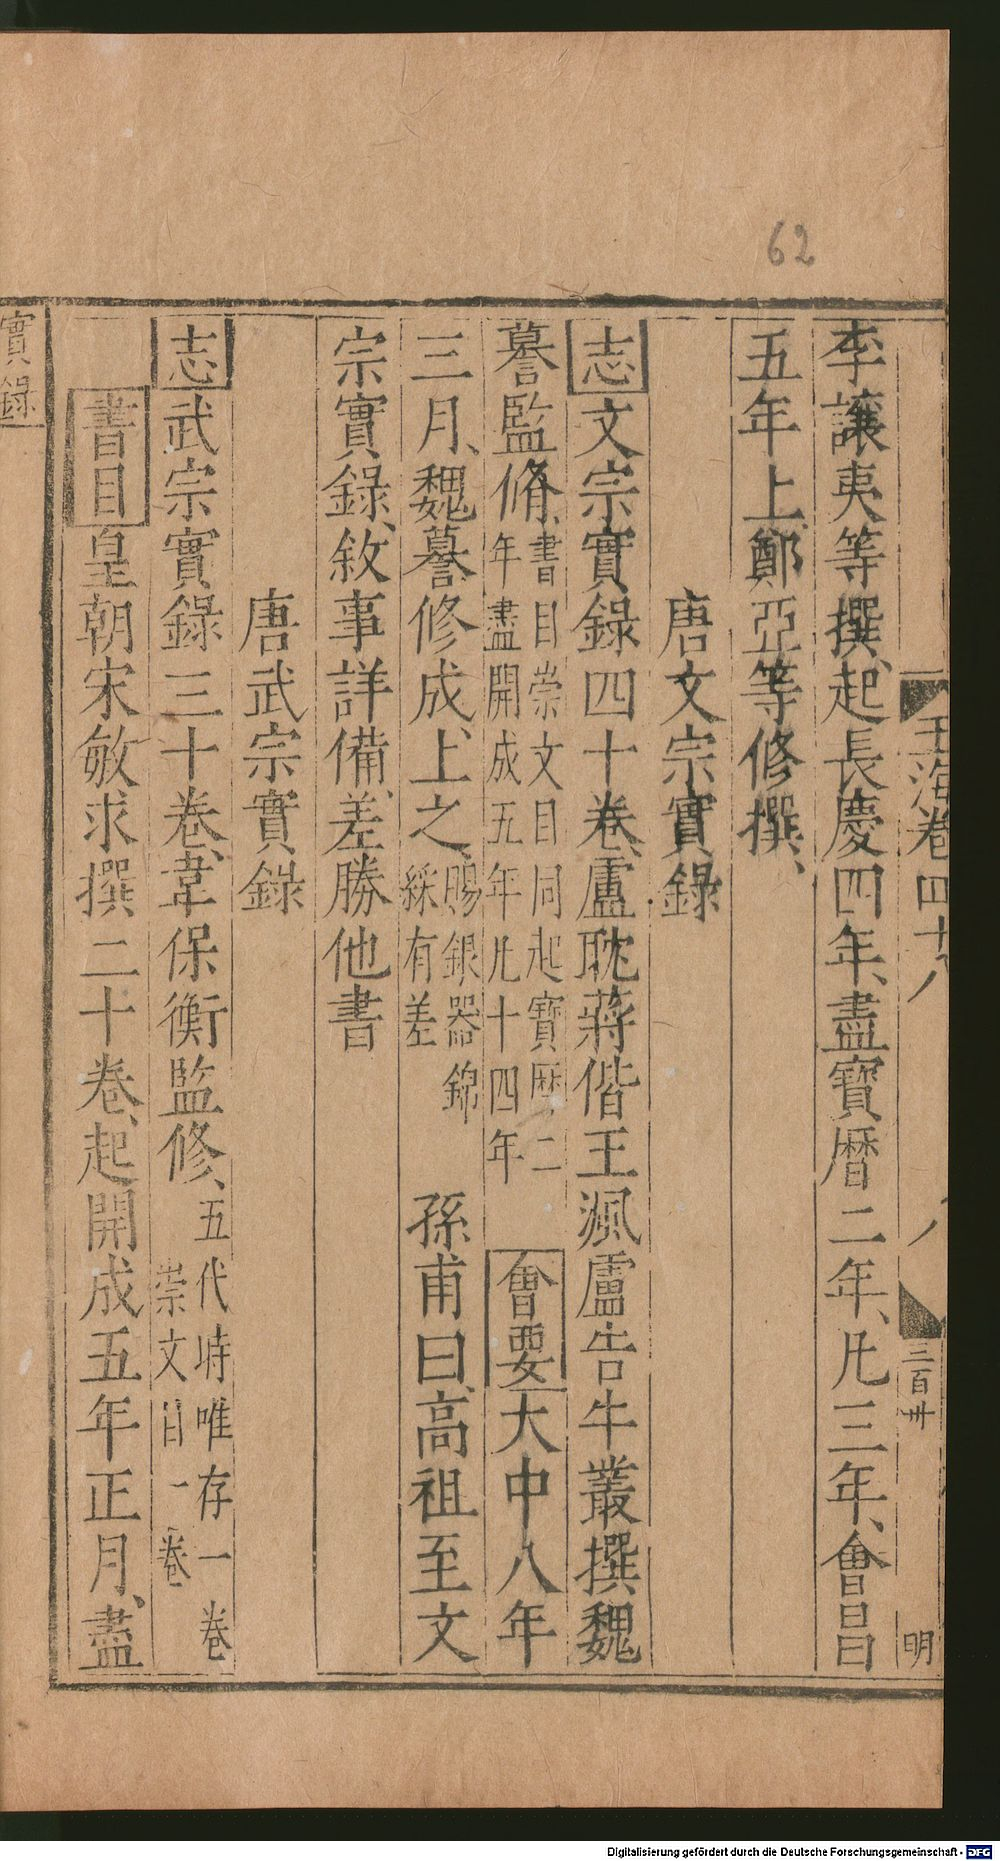 62
玉海卷四十八
八
三百卅
明
李讓夷等撰、起長慶四年、盡寶曆二年、凡三年、會昌
五年上、鄭亞等修撰、
唐文宗實錄
志文宗實錄四十卷、盧耽蔣偕王渢盧告牛叢撰魏
謩監脩、書目崇文目同起寶曆二年盡開成五年凡十四年 會要大中八年
三月、魏謩修成、上之、賜銀器錦綵有差 孫甫曰、高祖至文
宗實錄、敘事詳備、差勝他書
唐武宗實錄
志武宗實錄三十卷、韋保衡監修、五代時唯存一卷崇文目一卷
書目皇朝宋敏求撰二十卷、起開成五年正月、盡
實錄
Digitalisierung gefördert durch die Deutsche Forschungsgemeinschaft - DFG